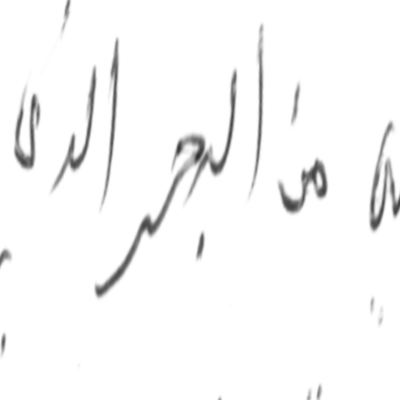 من البحر الذى